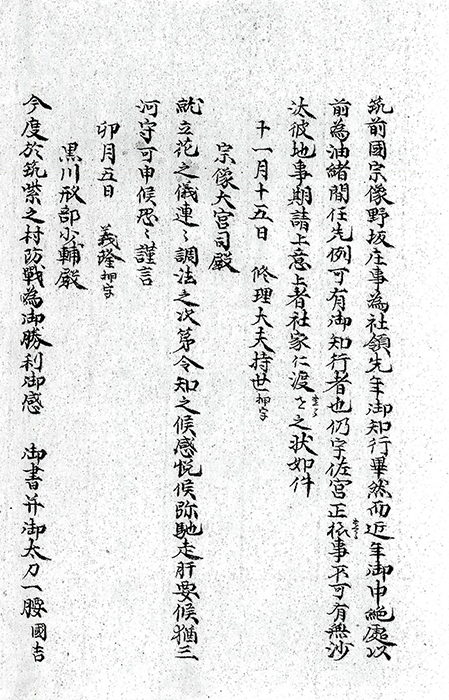 筑前國宗像野坂庄事為社領先年御知行畢然而近年御中絶處以
前為由緒間任先例可有御知行者也仍宇佐宮正祢事不可有無沙
汰彼地事期請上意上者社家仁渡之状如件
十一月十五日 修理大夫持世押字
宗像大宮司殿
就立花之儀連々調法之次第令知之候感悦候弥馳走肝要候猶三
河守可申候恐々謹言
卯月五日 義隆押字
黒川刑部少輔殿
今度於筑紫之村防戦為御勝利御感 御書并御太刀一腰國吉